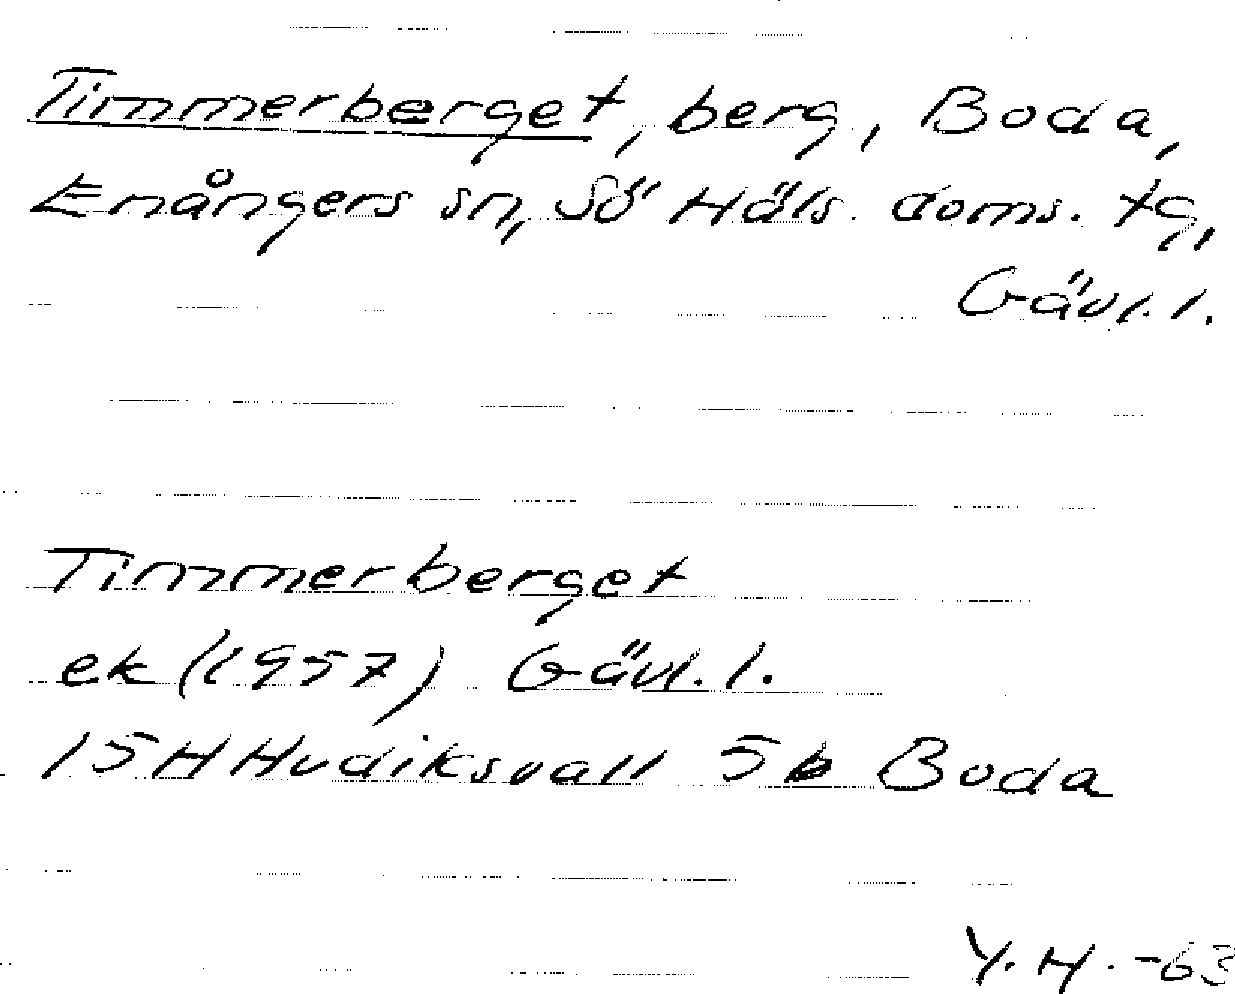 Timmerberget, berg, Boda,
Enångers sn, Sö Häls. doms. tg,
Gävl. l.
Timmerberget
ek (1957) Gävl. l.
15H Hudiksvall 5b Boda
Y. H. -63